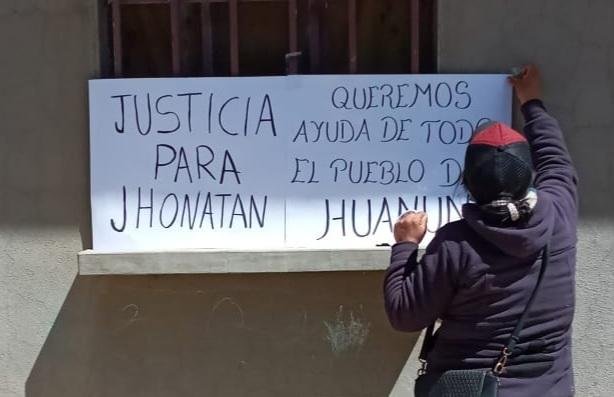 JUSTICIA
PARA
JHONATAN
QUEREMOS
AYUDA DE TODO
EL PUEBLO D
HUANUN